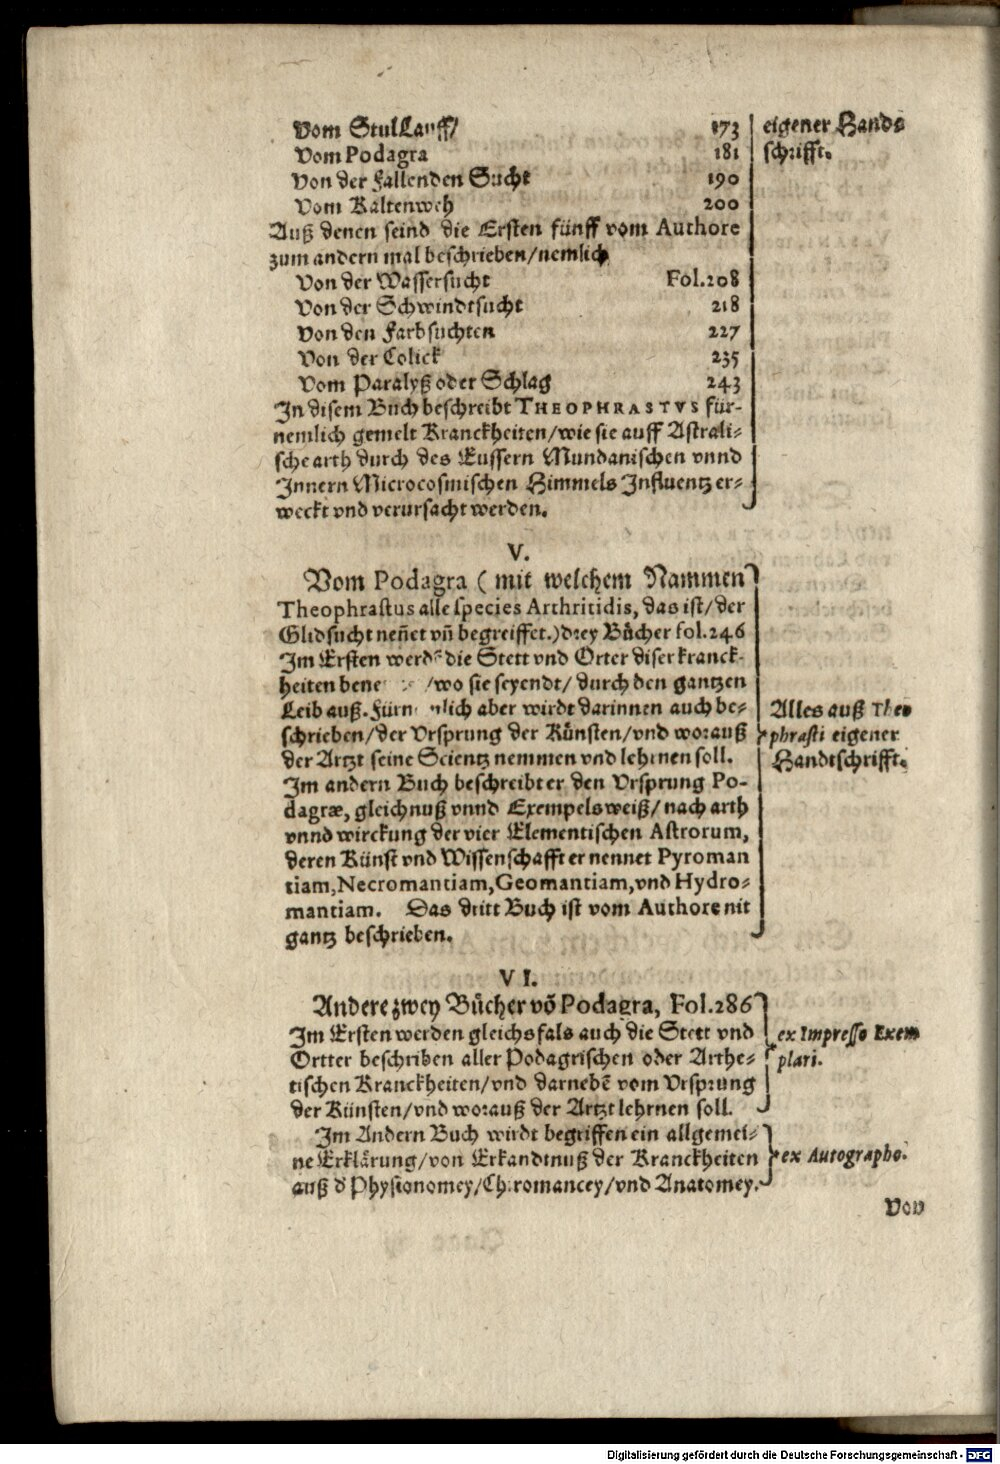 Vom StulLauff/ 173
Vom Podagra 181
Von der Fallenden Sucht 190
Vom Kaltenweh 200
Auß denen seind die Ersten fünff vom Authore
zum andern mal beschrieben/nemlich
Von der Wassersucht Fol.208
Von der Schwindtsucht 218
Von den Farbsuchten 227
Von der Colick 235
Vom Paralyß oder Schlag 243
In disem Buch beschreibt THEOPHRASTVS für-
nemlich gemelt Kranckheiten/wie sie auff Astrali-
sche arth durch des Eussern Mundanischen vnnd
Innern Microcosmischen Himmels Influentz er-
weckt vnd verursacht werden.
eigener Hand-
schrifft.
V.
Vom Podagra ( mit welchem Nammen
Theophrastus alle species Arthritidis, das ist/der
Glidsucht neñet vñ begreiffet.) drey Bůcher fol.246
Im Ersten werdē die Stett vnd Orter diser kranck-
heiten bene /wo sie seyendt/durch den gantzen
Leib auß. Fürn lich aber wirdt darinnen auch be-
schrieben/der Vrsprung der Kůnsten/vnd worauß
der Artzt seine Scientz nemmen vnd lehrnen soll.
Im andern Buch beschreibt er den Vrsprung Po-
dagræ, gleichnuß vnnd Exempelsweiß/nach arth
vnnd wirckung der vier Elementischen Astrorum,
deren Künst vnd Wissenschafft er nennet Pyroman
tiam, Necromantiam, Geomantiam, vnd Hydro-
mantiam. Das dritt Buch ist vom Authore nit
gantz beschrieben.
Alles auß Theo
phrasti eigener
Handtschrifft.
VI.
Andere zwey Bůcher võ Podagra, Fol.286
Im Ersten werden gleichsfals auch die Stett vnd
Ortter beschriben aller Podagrischen oder Arthe-
tischen Kranckheiten/vnd darnebē vom Vrsprung
der Künsten/vnd worauß der Artzt lehrnen soll.
ex Impresso Exem
plari.
Im Andern Buch wirdt begriffen ein allgemei-
ne Erklärung/von Erkandtnuß der Kranckheiten
auß d' Physionomey/Chiromancey/vnd Anatomey.
ex Autographo.
Von
Digitalisierung gefördert durch die Deutsche Forschungsgemeinschaft - DFG